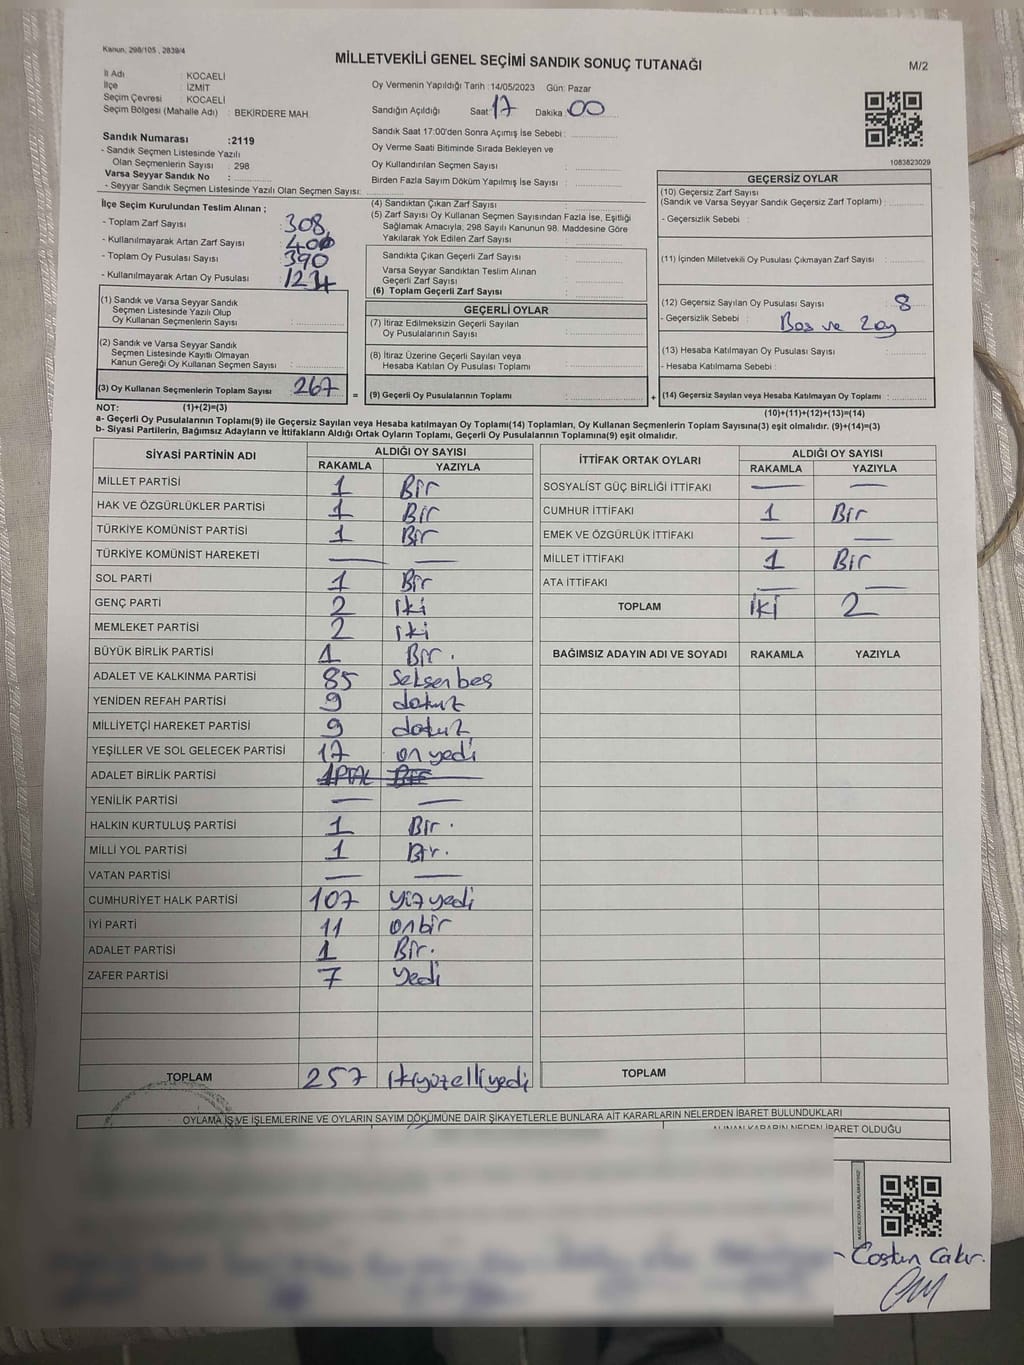 Kanun; 298/105 , 2839/4
MİLLETVEKİLİ GENEL SEÇİMİ SANDIK SONUÇ TUTANAĞI
M/2
İl Adı : KOCAELİ
İlçe : İZMİT
Seçim Çevresi : KOCAELİ
Seçim Bölgesi (Mahalle Adı) : BEKİRDERE MAH.
Oy Vermenin Yapıldığı Tarih : 14/05/2023 Gün: Pazar
Sandığın Açıldığı Saat : 17 Dakika : 00
Sandık Saat 17:00'den Sonra Açımış İse Sebebi :
Oy Verme Saati Bitiminde Sırada Bekleyen ve
Oy Kullandırılan Seçmen Sayısı :
Birden Fazla Sayım Döküm Yapılmış İse Sayısı :
1083823029
Sandık Numarası : 2119
- Sandık Seçmen Listesinde Yazılı
Olan Seçmenlerin Sayısı : 298
Varsa Seyyar Sandık No :
- Seyyar Sandık Seçmen Listesinde Yazılı Olan Seçmen Sayısı:
İlçe Seçim Kurulundan Teslim Alınan ;
- Toplam Zarf Sayısı : 308
- Kullanılmayarak Artan Zarf Sayısı :
- Toplam Oy Pusulası Sayısı : 390
- Kullanılmayarak Artan Oy Pusulası :
(1) Sandık ve Varsa Seyyar Sandık
Seçmen Listesinde Yazılı Olup
Oy Kullanan Seçmenlerin Sayısı :
(2) Sandık ve Varsa Seyyar Sandık
Seçmen Listesinde Kayıtlı Olmayan
Kanun Gereği Oy Kullanan Seçmen Sayısı :
(3) Oy Kullanan Seçmenlerin Toplam Sayısı : 267
=
(4) Sandıktan Çıkan Zarf Sayısı :
(5) Zarf Sayısı Oy Kullanan Seçmen Sayısından Fazla İse, Eşitliği
Sağlamak Amacıyla, 298 Sayılı Kanunun 98. Maddesine Göre
Yakılarak Yok Edilen Zarf Sayısı :
Sandıkta Çıkan Geçerli Zarf Sayısı :
Varsa Seyyar Sandıktan Teslim Alınan
Geçerli Zarf Sayısı :
(6) Toplam Geçerli Zarf Sayısı :
GEÇERLİ OYLAR
(7) İtiraz Edilmeksizin Geçerli Sayılan
Oy Pusulalarının Sayısı :
(8) İtiraz Üzerine Geçerli Sayılan veya
Hesaba Katılan Oy Pusulası Toplamı :
(9) Geçerli Oy Pusulalarının Toplamı :
+
GEÇERSİZ OYLAR
(10) Geçersiz Zarf Sayısı
(Sandık ve Varsa Seyyar Sandık Geçersiz Zarf Toplamı) :
- Geçersizlik Sebebi :
(11) İçinden Milletvekili Oy Pusulası Çıkmayan Zarf Sayısı :
(12) Geçersiz Sayılan Oy Pusulası Sayısı : 8
- Geçersizlik Sebebi : Bos ve
(13) Hesaba Katılmayan Oy Pusulası Sayısı :
- Hesaba Katılmama Sebebi :
(14) Geçersiz Sayılan veya Hesaba Katılmayan Oy Toplamı :
NOT: (1)+(2)=(3)
(10)+(11)+(12)+(13)=(14)
a- Geçerli Oy Pusulalarının Toplamı(9) ile Geçersiz Sayılan veya Hesaba katılmayan Oy Toplamı(14) Toplamları, Oy Kullanan Seçmenlerin Toplam Sayısına(3) eşit olmalıdır. (9)+(14)=(3)
b- Siyasi Partilerin, Bağımsız Adayların ve İttifakların Aldığı Ortak Oyların Toplamı, Geçerli Oy Pusulalarının Toplamına(9) eşit olmalıdır.
SİYASİ PARTİNİN ADI ALDIĞI OY SAYISI
RAKAMLA YAZIYLA
MİLLET PARTİSİ 1 Bir
HAK VE ÖZGÜRLÜKLER PARTİSİ 1 Bir
TÜRKİYE KOMÜNİST PARTİSİ 1 Bir
TÜRKİYE KOMÜNİST HAREKETİ — —
SOL PARTİ 1 Bir
GENÇ PARTİ 2 iki
MEMLEKET PARTİSİ 2 iki
BÜYÜK BİRLİK PARTİSİ 1 Bir.
ADALET VE KALKINMA PARTİSİ 85 Seksenbeş
YENİDEN REFAH PARTİSİ 9 dokuz
MİLLİYETÇİ HAREKET PARTİSİ 9 dokuz
YEŞİLLER VE SOL GELECEK PARTİSİ 17 on yedi
ADALET BİRLİK PARTİSİ
YENİLİK PARTİSİ — —
HALKIN KURTULUŞ PARTİSİ 1 Bir.
MİLLİ YOL PARTİSİ 1 Bir.
VATAN PARTİSİ — —
CUMHURİYET HALK PARTİSİ 107 yüzyedi
İYİ PARTİ 11 onbir
ADALET PARTİSİ 1 Bir.
ZAFER PARTİSİ 7 yedi
TOPLAM 257 ikiyüzelliyedi
İTTİFAK ORTAK OYLARI ALDIĞI OY SAYISI
RAKAMLA YAZIYLA
SOSYALİST GÜÇ BİRLİĞİ İTTİFAKI — —
CUMHUR İTTİFAKI 1 Bir
EMEK VE ÖZGÜRLÜK İTTİFAKI — —
MİLLET İTTİFAKI 1 Bir
ATA İTTİFAKI — —
TOPLAM iki 2
BAĞIMSIZ ADAYIN ADI VE SOYADI RAKAMLA YAZIYLA
TOPLAM
OYLAMA İŞ VE İŞLEMLERİNE VE OYLARIN SAYIM DÖKÜMÜNE DAİR ŞİKAYETLERLE BUNLARA AİT KARARLARIN NELERDEN İBARET BULUNDUKLARI
ALINAN KARARIN NEDEN İBARET OLDUĞU
Costun Cakır.